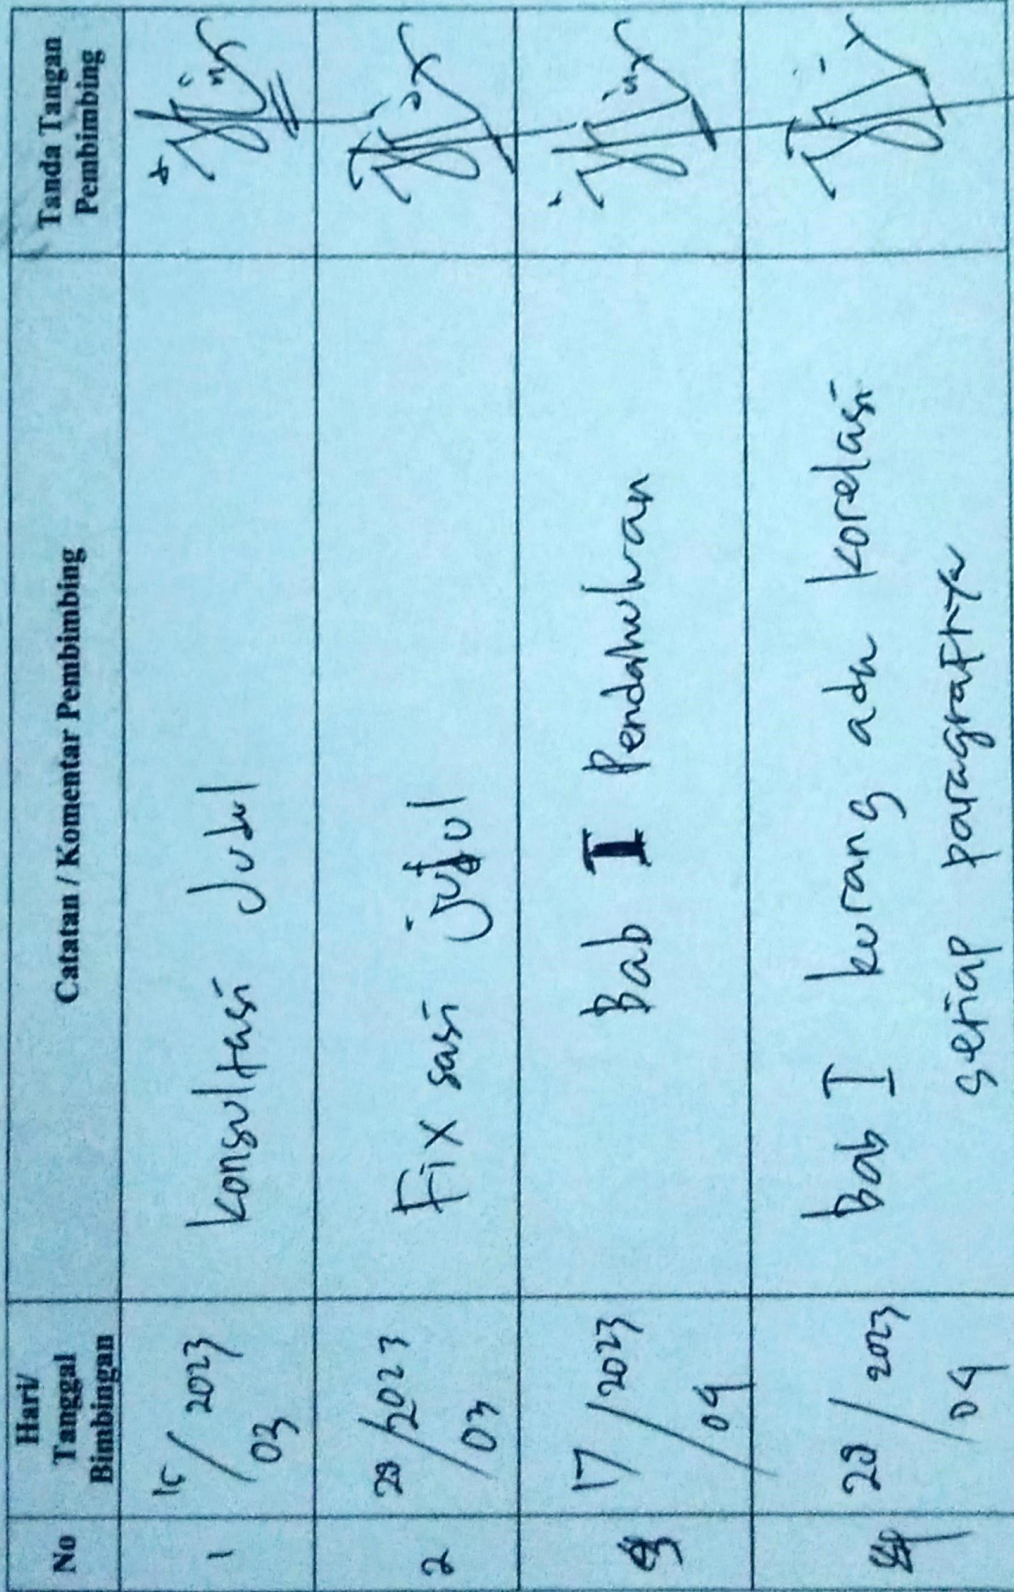 No
Hari/
Tanggal
Bimbingan
Catatan / Komentar Pembimbing
Tanda Tangan
Pembimbing
1
15/2023
03
Konsultasi Judul
2
/2023
03
Fix sasi judul
3
17/2023
04
Bab I Pendahuluan
4
/2023
04
Bab I kurang ada korelasi
setiap paragrafnya